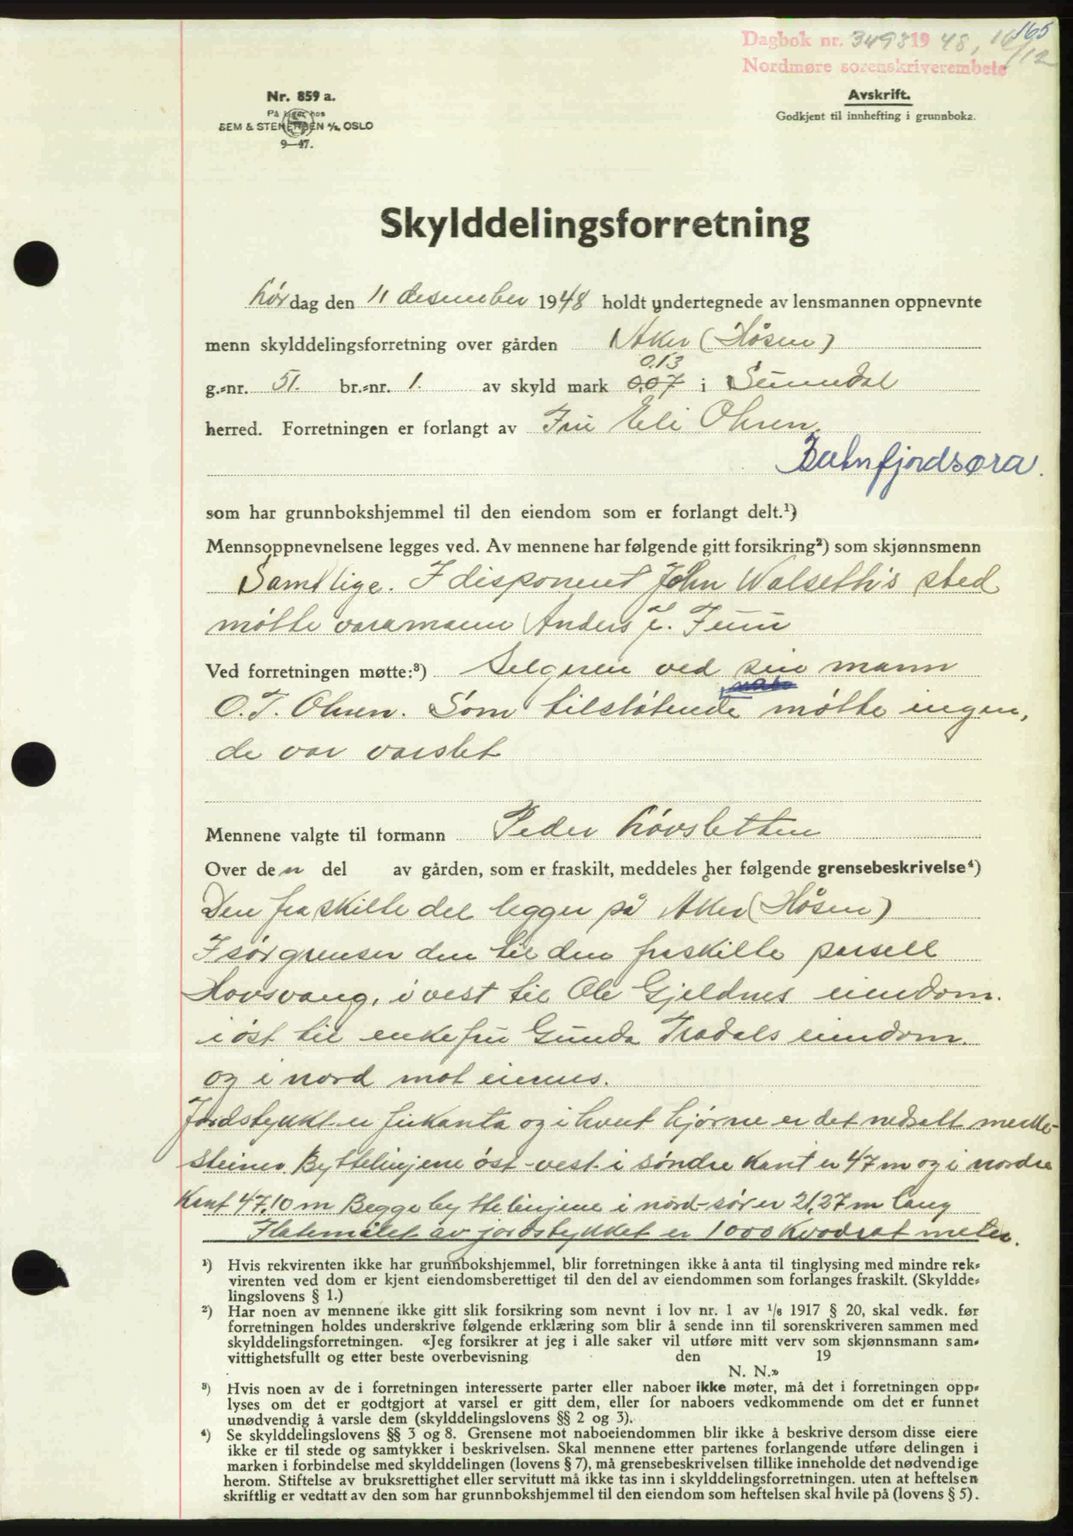 165
Dagbok nr. 3493 1948, 16/12
Nordmøre sorenskriverembete
Nr. 859 a.
På lager hos
SEM & STENERSEN A/S, OSLO
9—47.
Avskrift.
Godkjent til innhefting i grunnboka.
Skylddelingsforretning
Lør dag den 11 desember 1948 holdt undertegnede av lensmannen oppnevnte
menn skylddelingsforretning over gården Aker (Høsen)
0.13
g.-nr. 51. br.-nr. 1. av skyld mark 0,07 i Sunndal
herred. Forretningen er forlangt av Fru Eli Ohren
Batnfjordsøra.
som har grunnbokshjemmel til den eiendom som er forlangt delt.¹)
Mennsoppnevnelsene legges ved. Av mennene har følgende gitt forsikring²) som skjønnsmenn
Samtlige. I disponent John Walseth's sted
møtte varamann Anders J.
Ved forretningen møtte:³) Selgeren ved sin mann
O.T. Ohren. Som tilstøtende møtte ingen,
de var varslet
Mennene valgte til formann Peder Løvsletten
Over den del av gården, som er fraskilt, meddeles her følgende grensebeskrivelse⁴)
Den fraskilte del legger på Aker (Høsen)
I sør grenser den til den fraskilte parsell
Hovsvang, i vest til Ole Gjeldnes eiendom.
i øst til enkefru Gunda Tredals eiendom.
og i nord mot eienes.
Jordstykket er firkanta og i hvert hjørne er det nedsatt merke-
steiner. Byttelinjene øst-vest i søndre kant er 47 m og i nordre
kant 47,10 m Begge byttelinjene i nord-sør er 21,27 m lang
Flatemålet av jordstykket er 1000 kvadrat meter.
¹) Hvis rekvirenten ikke har grunnbokshjemmel, blir forretningen ikke å anta til tinglysing med mindre rek-
virenten ved dom er kjent eiendomsberettiget til den del av eiendommen som forlanges fraskilt. (Skyldde-
lingslovens § 1.)
²) Har noen av mennene ikke gitt slik forsikring som nevnt i lov nr. 1 av 1/6 1917 § 20, skal vedk. før
forretningen holdes underskrive følgende erklæring som blir å sende inn til sorenskriveren sammen med
skylddelingsforretningen. «Jeg forsikrer at jeg i alle saker vil utføre mitt verv som skjønnsmann sam-
vittighetsfullt og etter beste overbevisning den 19
N. N.»
³) Hvis noen av de i forretningen interesserte parter eller naboer ikke møter, må det i forretningen opp-
lyses om det er godtgjort at varsel er gitt dem, eller for naboers vedkommende om det er funnet
unødvendig å varsle dem (skylddelingslovens §§ 2 og 3).
⁴) Se skylddelingslovens §§ 3 og 8. Grensene mot naboeiendommen blir ikke å beskrive dersom disse eiere
ikke er til stede og samtykker i beskrivelsen. Skal mennene etter partenes forlangende utføre delingen i
marken i forbindelse med skylddelingen (lovens § 7), må grensebeskrivelsen tillike inneholde det nødvendige
herom. Stiftelse av bruksrettighet eller servitutt må ikke tas inn i skylddelingsforretningen. uten at heftelsen
skriftlig er vedtatt av den som har grunnbokshjemmel til den eiendom som heftelsen skal hvile på (lovens § 5).